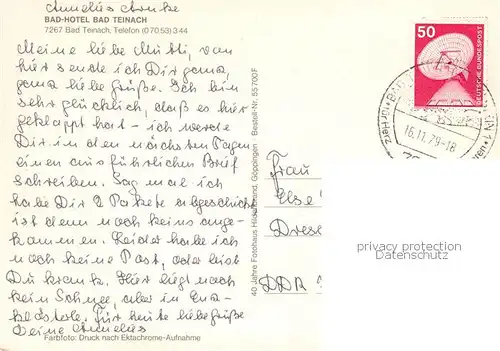 Annelies
BAD-HOTEL BAD TEINACH
7267 Bad Teinach, Telefon (07053) 344
Meine liebe Mutti, von
hier sende ich Dir ganz,
ganz liebe Grüße. Ich bin
sehr glücklich, daß es hier
geklappt hat - ich werde
Dir in den nächsten Tagen
einen ausführlichen Brief
schreiben. Sag mal ich
habe Dir 2 Pakete abgeschickt
ist denn noch keins ange-
kommen. Leider habe ich
noch keine Post, oder bist
Du krank. Hier liegt noch
kein Schnee, aber in Enz-
klösterle. Für heute liebe Grüße
Deine Annelies
Farbfoto: Druck nach Ektachrome-Aufnahme
40 Jahre Fotohaus Göppingen Bestell-Nr. 55700F
50
DEUTSCHE BUNDESPOST
16.11.79-18
für Herz
Frau
Else
Dres
DDR
privacy protection
watermark